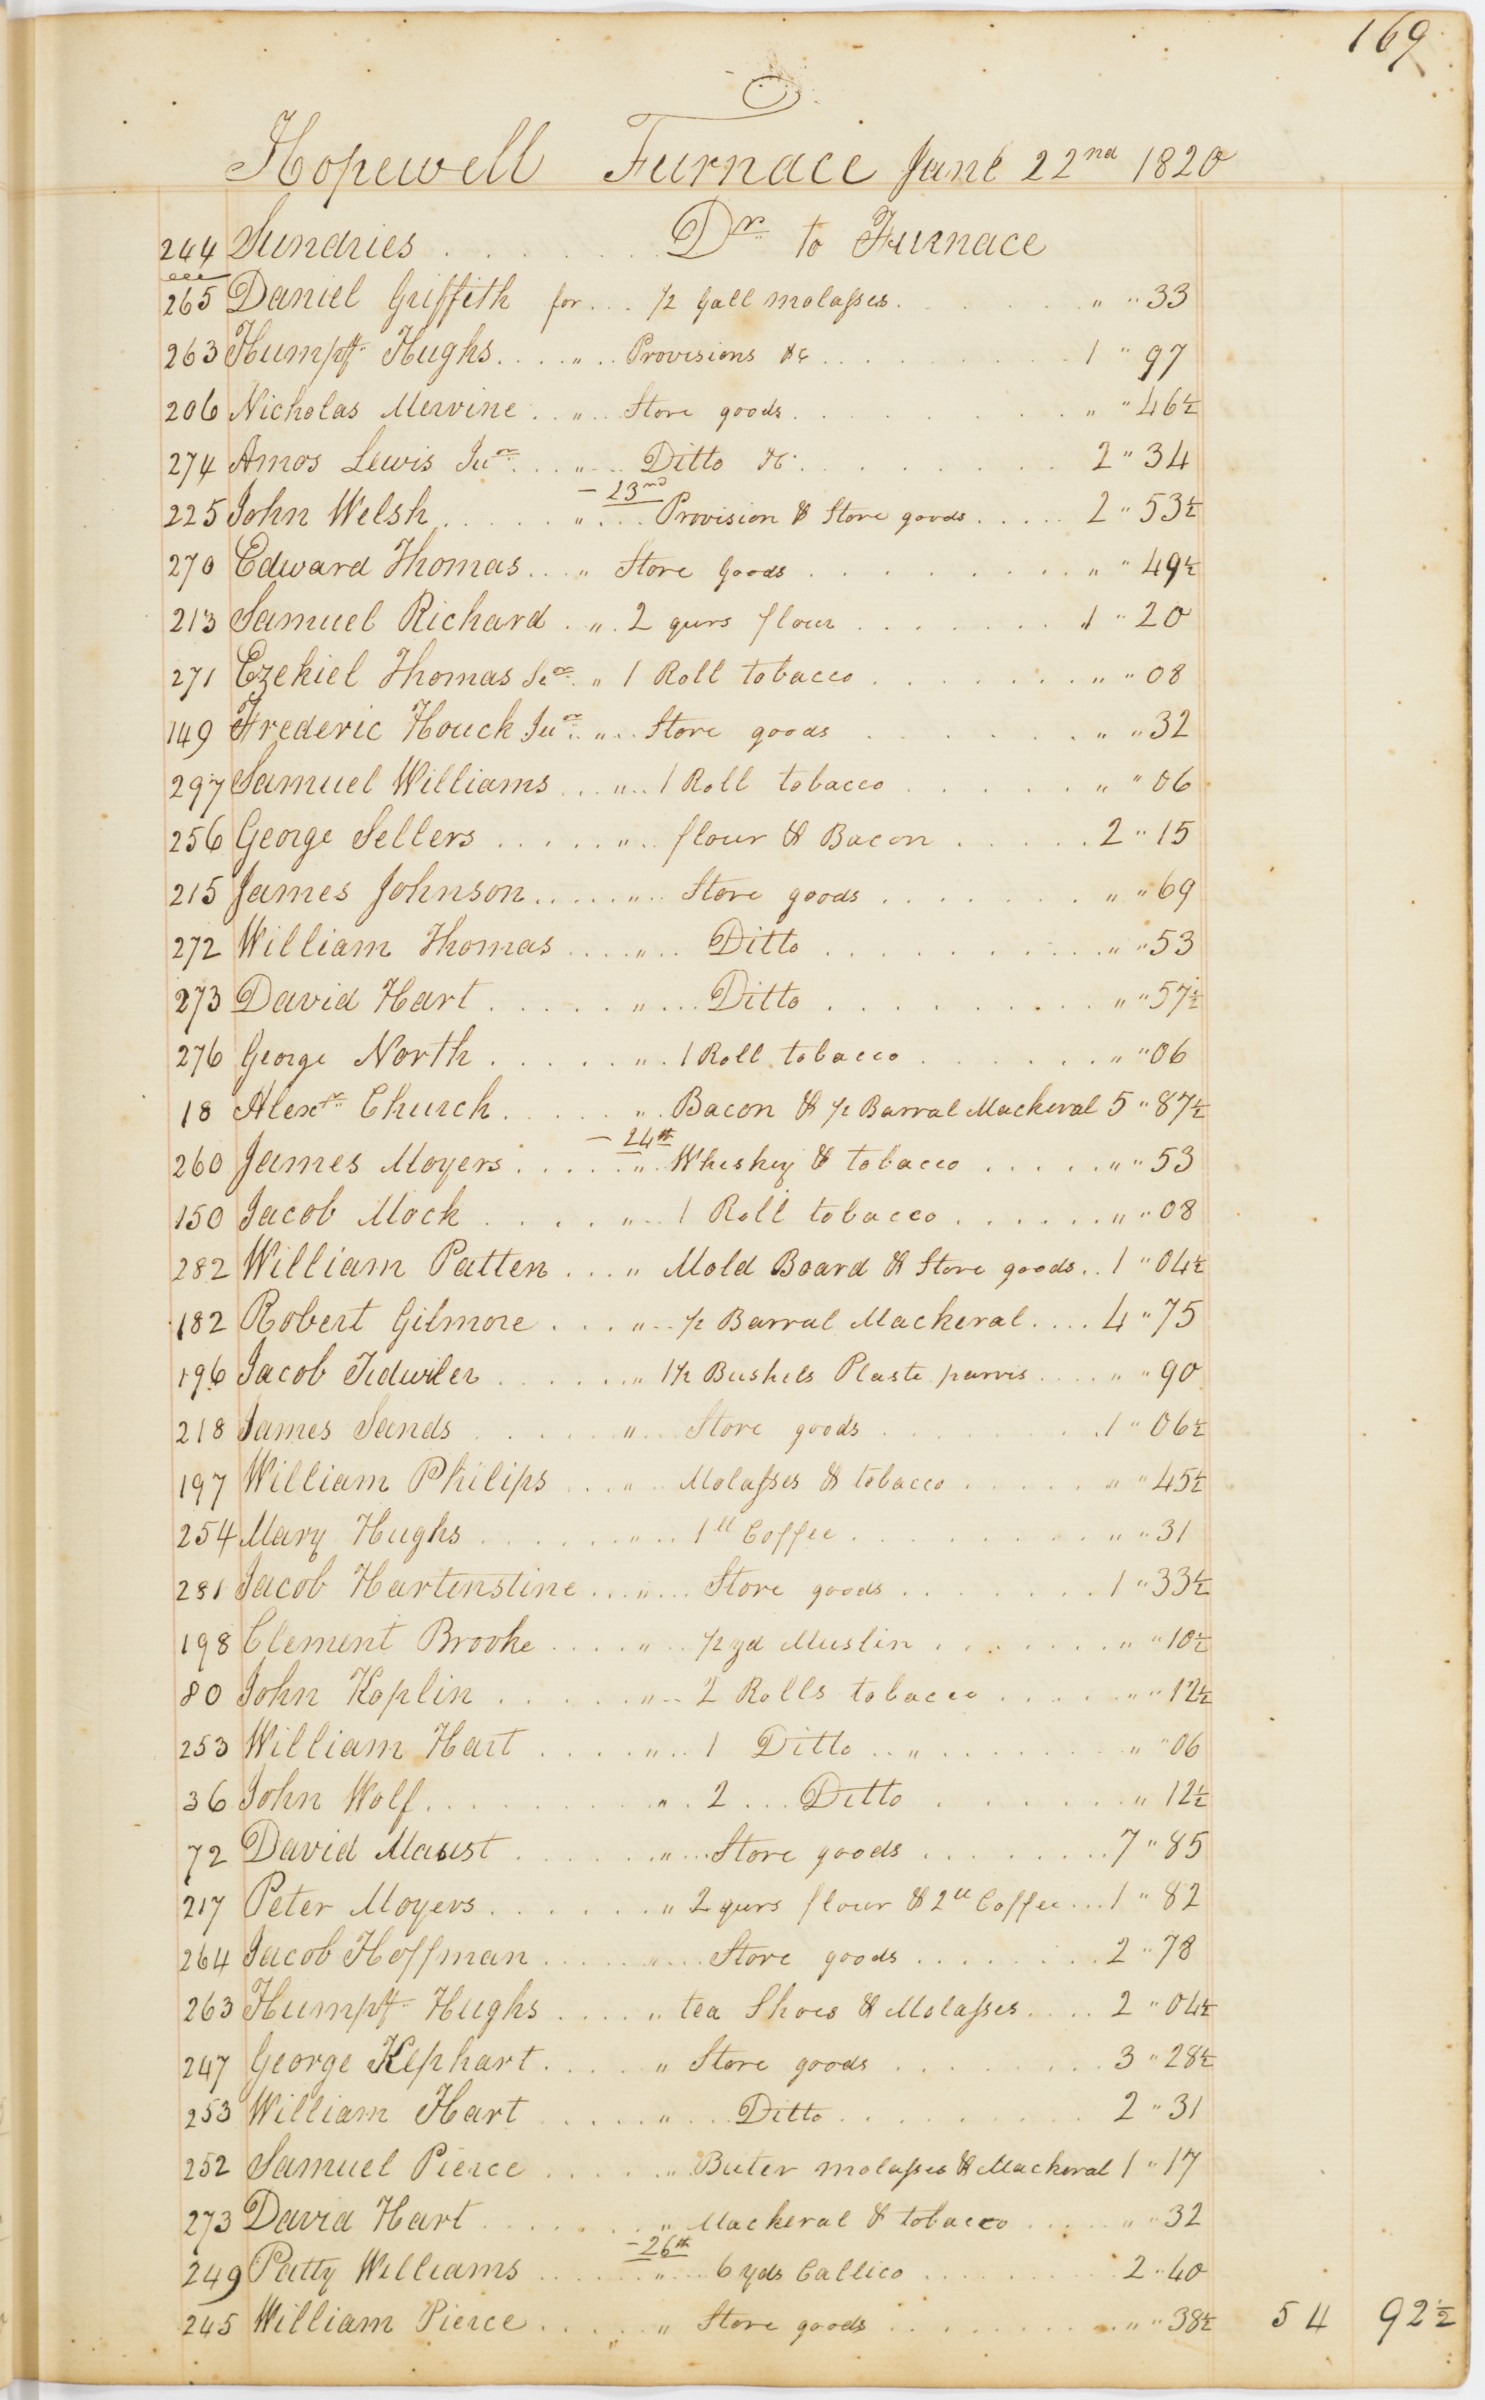 169
Hopewell Furnace June 22nd 1820
244 Sundries . . . . . . Dr. to Furnace
265 Daniel Griffith for . . . 1/2 Gall molasses . . . . . . " " 33
263 Humpy. Hughs . . . . " . . Provisions &c . . . . . . 1 " 97
206 Nicholas Mervine . . " . . Store goods . . . . . . " " 46½
274 Amos Lewis Jur. . . . " . . . Ditto &c . . . . . . 2 " 34
– 23rd
225 John Welsh . . . . . " . . . Provision & Store goods . . . . . 2 " 53½
270 Edward Thomas . . . " Store Goods . . . . . . " " 49½
213 Samuel Richard . " . 2 qurs flour . . . . . . 1 " 20
271 Ezekiel Thomas Ser. " 1 Roll tobacco . . . . . . " " 08
149 Frederic Houck Jur. . " . . Store goods . . . . . . " " 32
297 Samuel Williams . . . " . . 1 Roll tobacco . . . . . . " " 06
256 George Sellers . . . . . " . . flour & Bacon . . . . . 2 " 15
215 James Johnson . . . . . " . . Store goods . . . . . . " " 69
272 William Thomas . . . . " . . Ditto . . . . . . " " 53
273 David Hart . . . . . " . . . Ditto . . . . . . " " 57½
276 George North . . . . . " . 1 Roll tobacco . . . . . . " " 06
18 Alexr. Church . . . . . " . Bacon & 1/2 Barral Mackeral 5 " 87½
– 24th
260 James Moyers . . . . . " . Whiskey & tobacco . . . . . " " 53
150 Jacob Mock . . . . . " . . 1 Roll tobacco . . . . . . " " 08
282 William Patten . . . " Mold Board & Store goods . . 1 " 04½
182 Robert Gilmore . . . " . . 1/2 Barral Mackeral . . . . 4 " 75
196 Jacob Tidwiler . . . . . . " 1½ Bushels Plaste parris . . . . " " 90
218 James Sands . . . . " . . Store goods . . . . . . 1 " 06½
197 William Philips . . . " . . Molasses & tobacco . . . . . " " 45½
254 Mary Hughs . . . . . . " . . 1 ll Coffee . . . . . . " " 31
281 Jacob Hartenstine . . . " . . . Store goods . . . . . . 1 " 33½
198 Clement Brooke . . . . " . . 1/2 yd Muslin . . . . . . " " 10½
80 John Koplin . . . . . " . . 2 Rolls tobacco . . . . . " " 12½
253 William Hart . . . . " . . 1 Ditto . . " . . . . . . " " 06
36 John Wolf . . . . . . " . 2 . . . Ditto . . . . . . " 12½
72 David Maust . . . . . . " . . . Store goods . . . . . . 7 " 85
217 Peter Moyers . . . . . . " 2 qurs flour & 2 ll Coffee . . . 1 " 82
264 Jacob Hoffman . . . . . " . . . Store goods . . . . . . 2 " 78
263 Humpy. Hughs . . . . " tea Shoes & Molasses . . . . 2 " 04½
247 George Kephart . . . . " Store goods . . . . . . 3 " 28½
253 William Hart . . . . " . . Ditto . . . . . . 2 " 31
252 Samuel Pierce . . . . . " . Buter molasses & Mackeral 1 " 17
273 David Hart . . . . . . " Mackeral & tobacco . . . . " " 32
– 26th
249 Patty Williams . . . . . . " . . . 6 yds Callico . . . . . . 2 " 40
245 William Pierce . . . . . " Store goods . . . . . . " " 38½ 54 92½